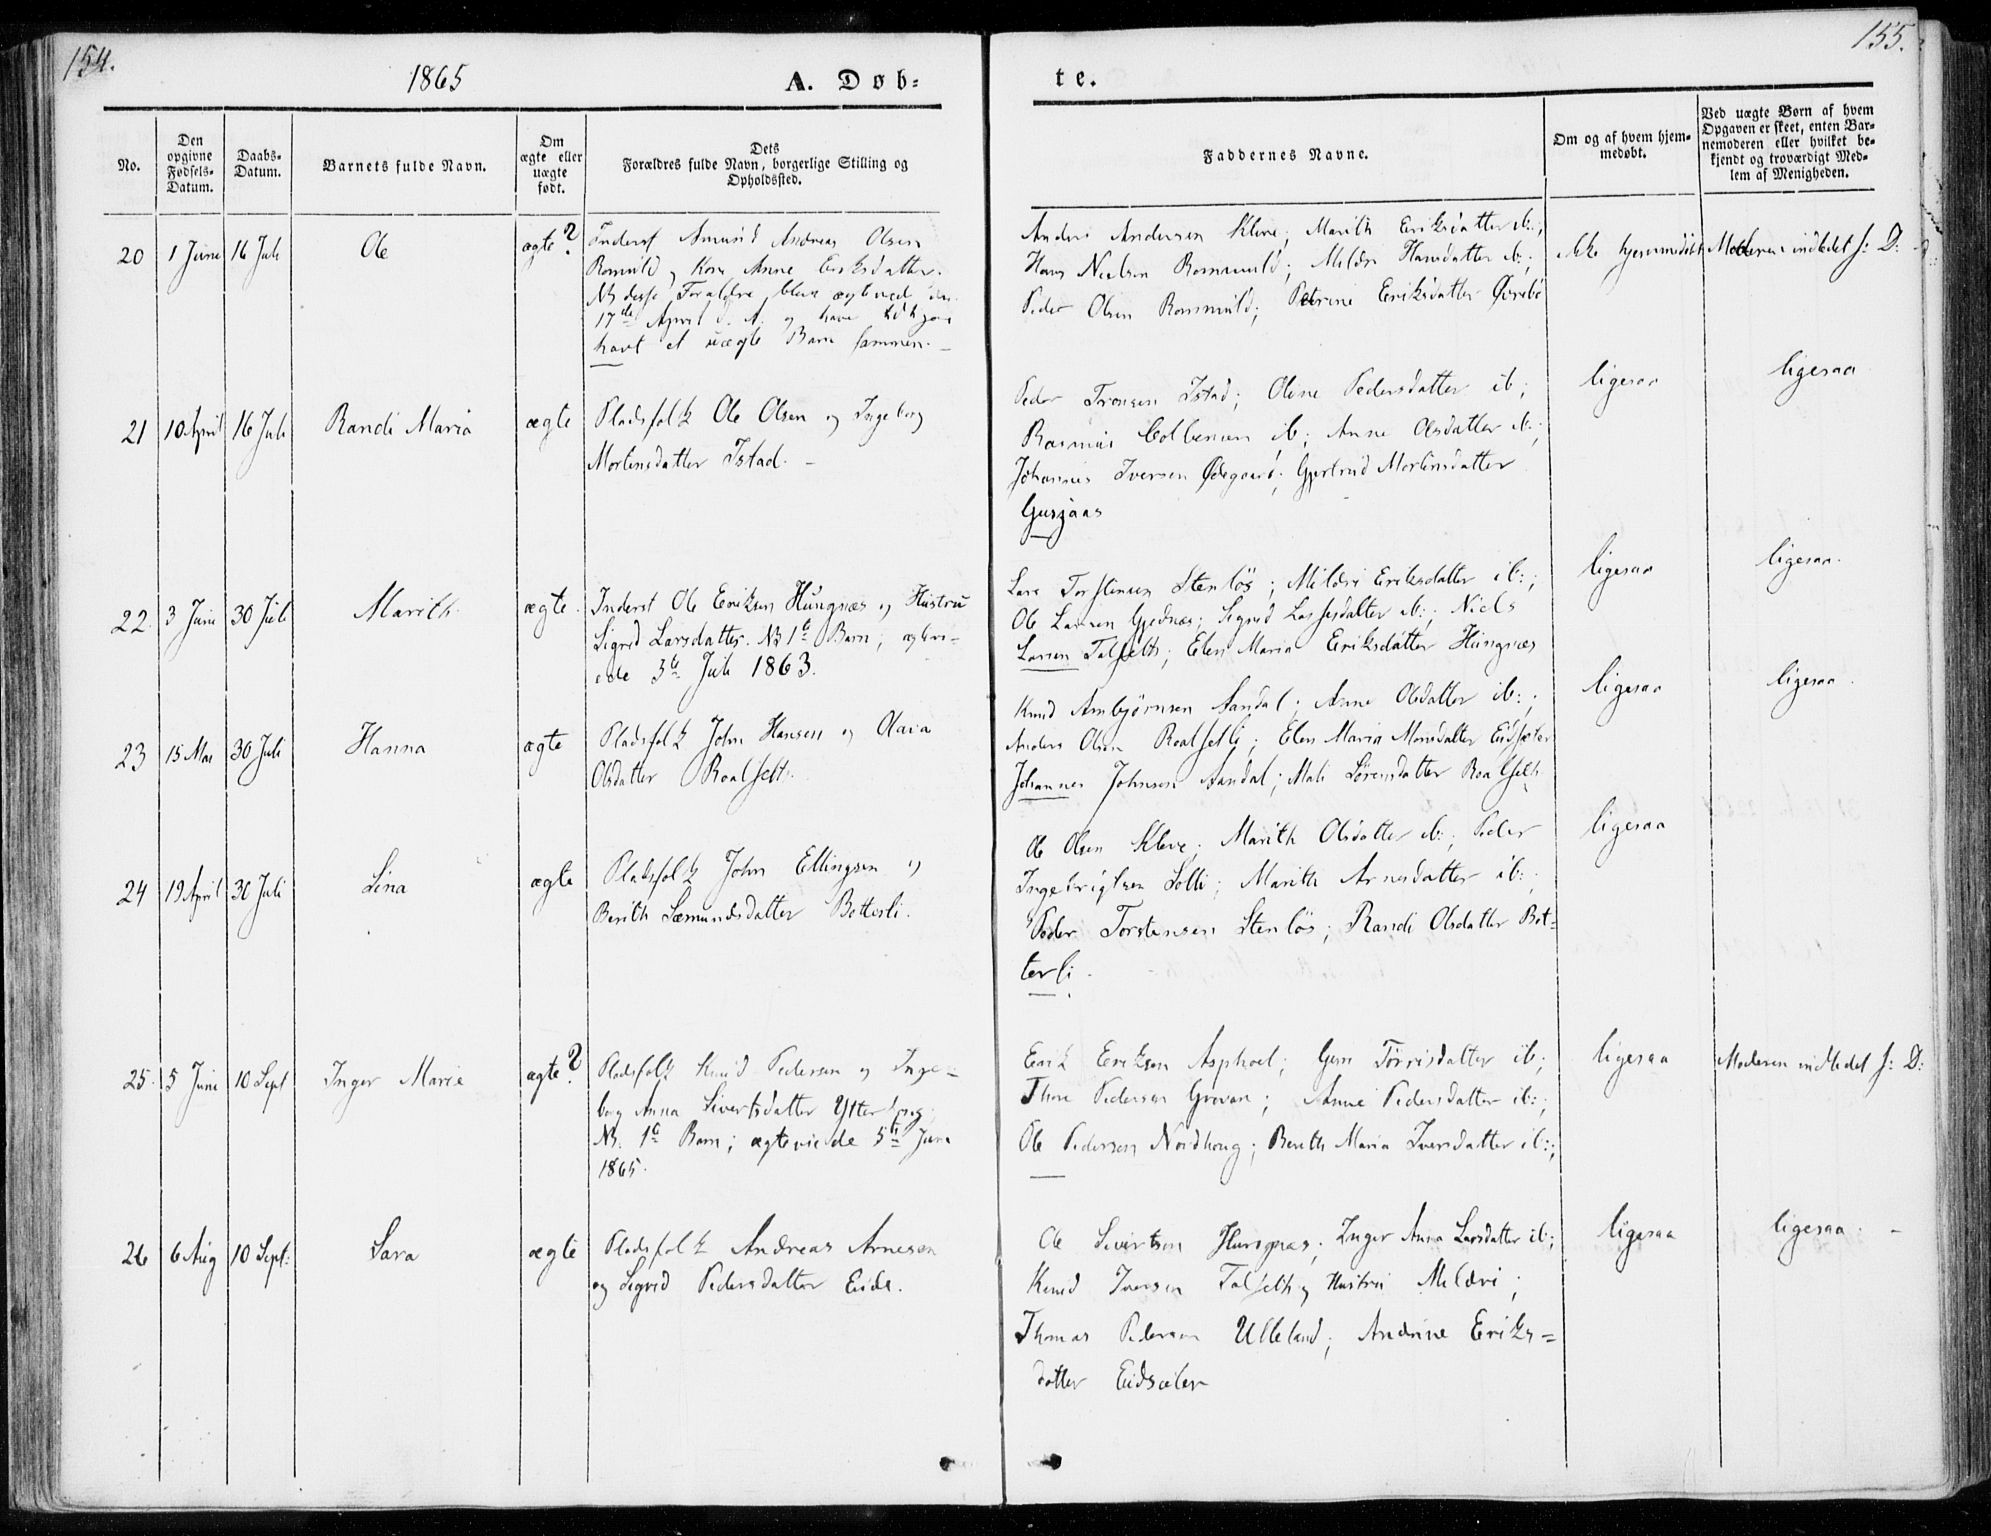 154.
1865
A. Døb-
te.
155.
No.
Den
opgivne
Fødsels-
Datum.
Daabs-
Datum.
Barnets fulde Navn.
Om
ægte eller
uægte
født.
Dets
Forældres fulde Navn, borgerlige Stilling og
Opholdssted.
Faddernes Navne.
Om og af hvem hjem-
medøbt.
Ved uægte Børn af hvem
Opgaven er skeet, enten Bar-
nemoderen eller hvilket be-
kjendt og troværdigt Med-
lem af Menigheden.
20 1 Juni 16 Juli Ole ægte?
Inderst Amund Andreas Olsen
og Kone Anne Eriksdatter.
NB disse Forældre bleve ægteviede den
17de April d. A. og have
havt et uægte Barn sammen. –
Anders Andersen Kleve; Marith Eriksdatter ib:;
Hans Nielsen; Mildri Hansdatter ib:;
Peder Olsen; Petrine Eriksdatter Øvrebø
ikke hjemmedøbt
Moderen indledet s: D:
21 10 April 16 Juli Randi Maria ægte
Pladsfolk Ole Olsen og Ingeborg
Mortensdatter Istad. –
Peder Tronsen Istad; Olene Pedersdatter ib;
Rasmus Colbensen ib; Anne Olsdatter ib:;
Johannes Iversen Ødegaard; Gjertrud Mortensdatter
Gusjaas
ligesaa
ligesaa
22. 3 Juni 30 Juli Marith ægte.
Inderst Ole Eriksen Hungnæs og Hustru
Sigrid Larsdatter. NB 1te Barn; ægtevi-
ede 3de Juli 1863.
Lars Torstensen Stenløs; Mildri Eriksdatter ib:;
Ole Larsen Gjednæs; Sigrid Lassesdatter ib:; Niels
Larsen Talseth; Elen Maria Eriksdatter Hungnæs
ligesaa
ligesaa.
23 15 Mai 30 Juli Hanna ægte
Pladsfolk John Hansen og Olava
Olsdatter Roalseth.
Knud Ambjørnsen Sandal; Anne Olsdatter ib:;
Anders Olsen Roalsetli; Elen Maria Monsdatter Eidsæter
Johannes Johnsen Sandal; Mali Sørensdatter Roalseth
ligesaa
ligesaa.
24 19 April 30 Juli Lina ægte
Pladsfolk John Ellingsen og
Berith Sæmundsdatter Botterli.
Ole Olsen Kleve; Marith Olsdatter ib:; Peder
Ingebrigtsen Solli; Marith Arnesdatter ib:;
Peder Torstensen Stenløs; Randi Olsdatter Bot-
terli.
ligesaa
25. 5 Juni 10 Sept Inger Marie ægte?
Pladsfolk Knud Pedersen og Inge-
borg Anna Sivertsdatter
NB. 1te Barn; ægteviede 5te Juni
1865.
Erik Eriksen Asphoel; Guri Tørrisdatter ib;
Thore Pedersen Grovan; Anne Pedersdatter ib:;
Ole Pedersen Nordhoug; Berith Maria Iversdatter ib:;
ligesaa
Moderen indledet s: D:
26 6 Aug 10 Sept: Sara ægte
Pladsfolk Andreas Arnesen
og Sigrid Pedersdatter Eide.
Ole Sivertsen Hungnæs; Inger Anna Larsdatter ib;
Knud Iversen Talseth og Hustru Mildri;
Thomas Pedersen Ulleland; Andrine Eriks=
datter Eidsæter
ligesaa
ligesaa. –